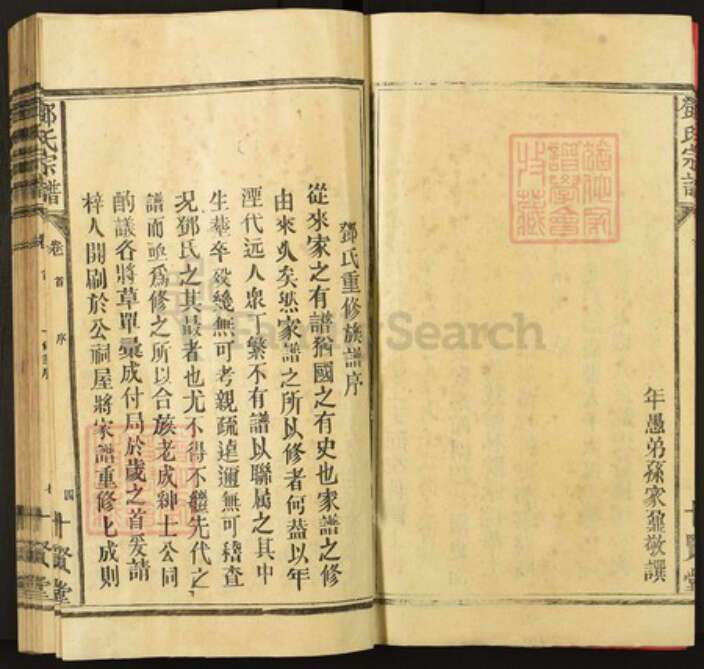 鄧氏宗譜
年愚弟孫家鼐敬譔
十賢堂
鄧氏重修族譜序
從來家之有譜猶國之有史也家譜之修
由來久矣然家譜之所以修者何葢以年
湮代远人衆丁繁不有譜以聯屬之其中
生葬卒殁幾無可考親疏逺邇無可稽查
况鄧氏之其最者也尤不得不繼先代之
譜而亟爲修之所以合族老成紳士公同
酌議各將草單彙成付局於歲之首爰請
梓人開刷於公祠屋將家譜重修匕成則
鄧氏宗譜
卷首 序
四
十賢堂
FamilySearch